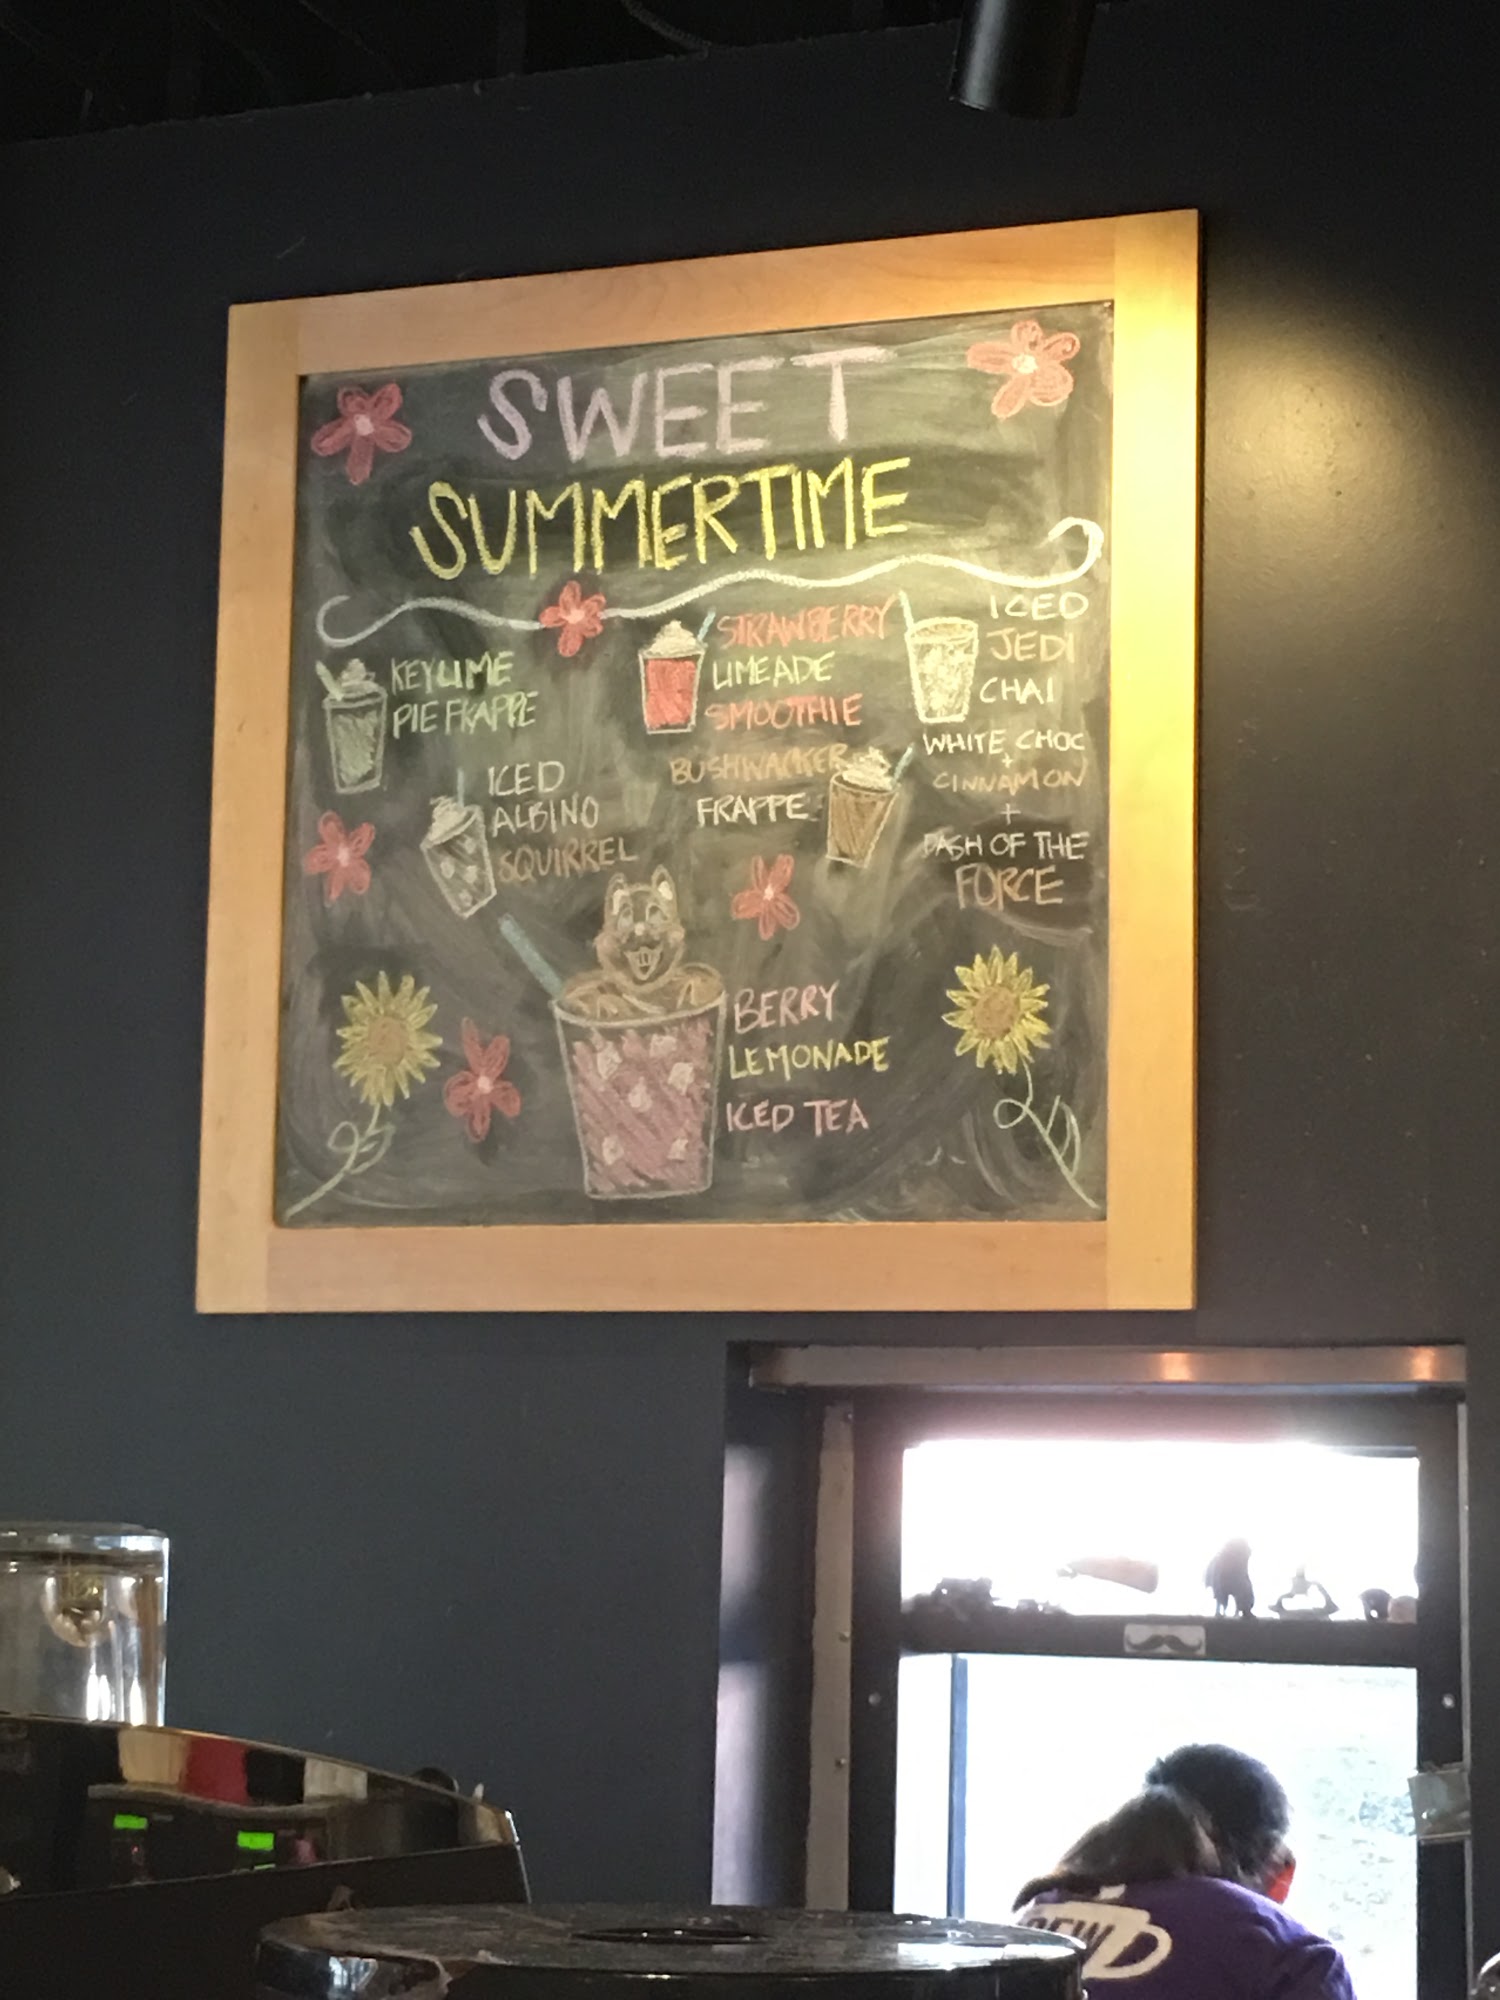 SWEET
SUMMERTIME
KEYLIME
PIE FRAPPE
STRAWBERRY
LIMEADE
SMOOTHIE
ICED
JEDI
CHAI
WHITE CHOC
+
CINNAMON
+
DASH OF THE
FORCE
ICED
ALBINO
SQUIRREL
BUSHWACKER
FRAPPE
BERRY
LEMONADE
ICED TEA